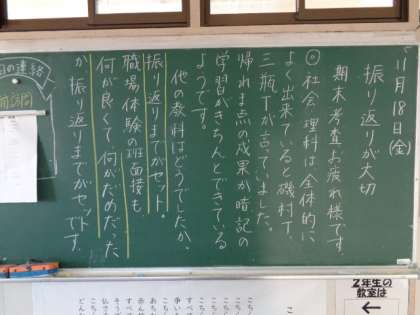 11月18日(金)
振り返りが大切
期末考査お疲れ様です。
◎社会、理科は全体的に
よく出来ていると磯村T、
三瓶Tが言っていました。
帰れま点の成果か暗記の
学習がきちんとできている
ようです。
他の教科はどうでしたか。
振り返りまでがセット。
職場体験の班面接も、
何が良くて、何がだめだった
か、振り返りまでがセット
です。
の連絡
2年生の
教室は
←